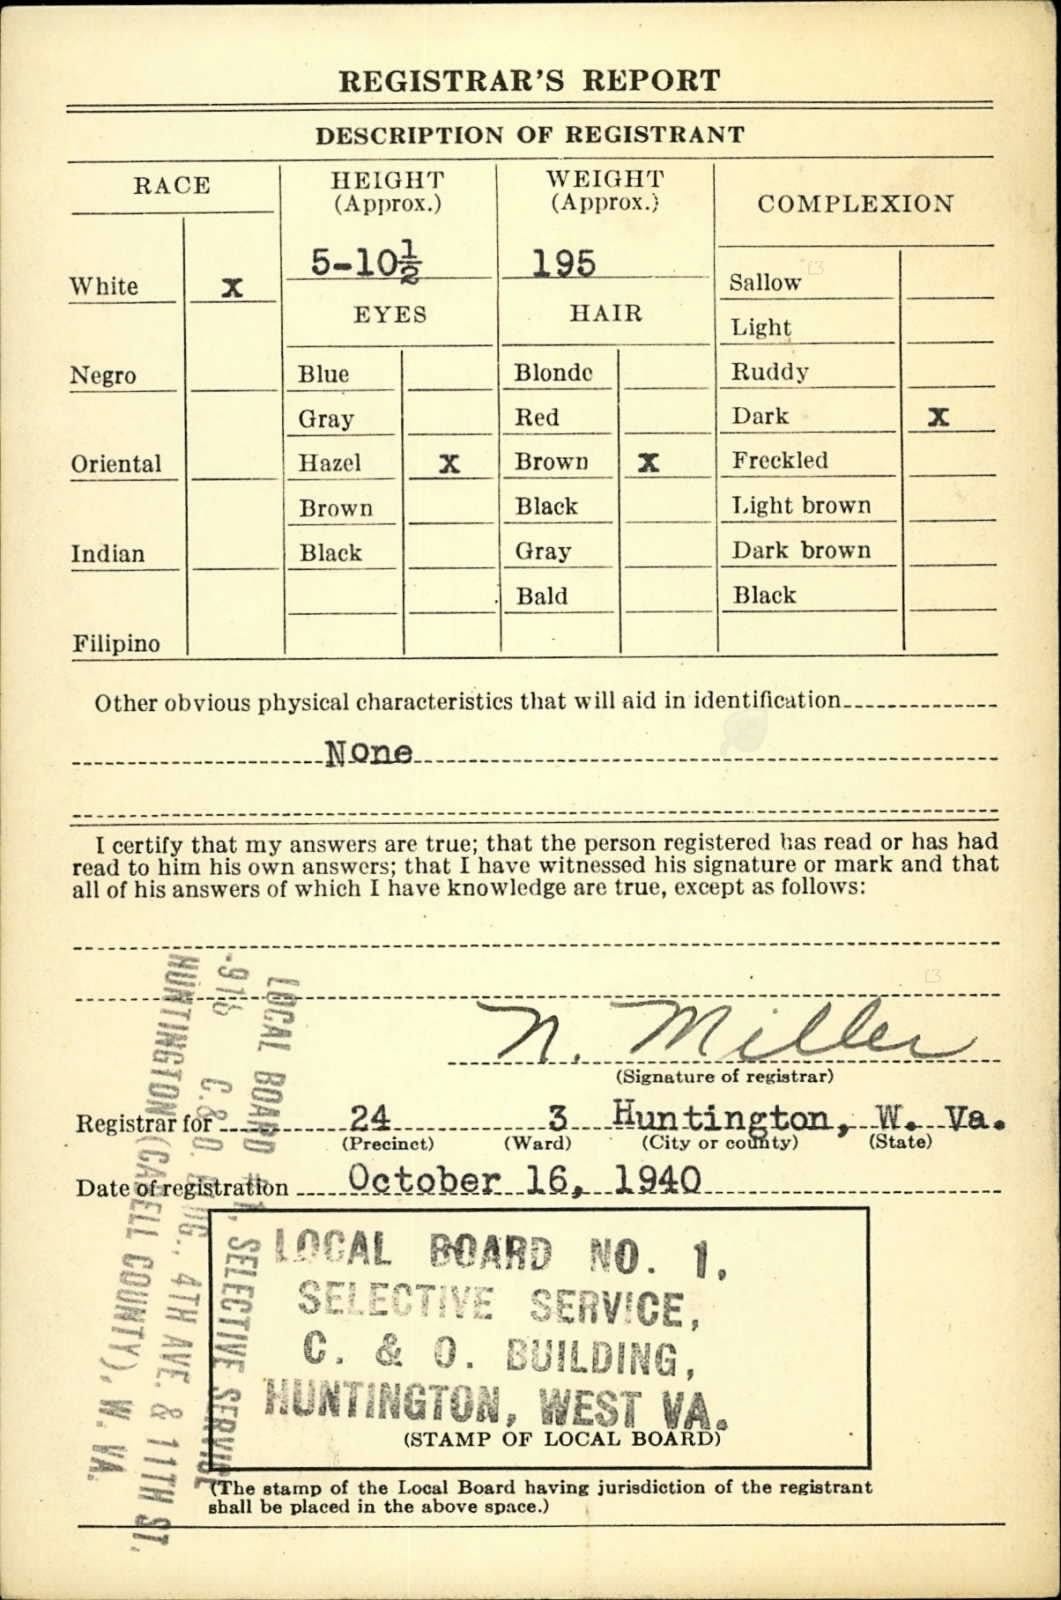 REGISTRAR'S REPORT
DESCRIPTION OF REGISTRANT
RACE
HEIGHT
(Approx.)
WEIGHT
(Approx.)
COMPLEXION
5-10½
195
White x
EYES
HAIR
Sallow
Light
Negro
Blue
Blonde
Ruddy
Gray
Red
Dark x
Oriental
Hazel x
Brown x
Freckled
Brown
Black
Light brown
Indian
Black
Gray
Dark brown
Bald
Black
Filipino
Other obvious physical characteristics that will aid in identification
None
I certify that my answers are true; that the person registered has read or has had
read to him his own answers; that I have witnessed his signature or mark and that
all of his answers of which I have knowledge are true, except as follows:
N. Miller
(Signature of registrar)
Registrar for 24 3 Huntington, W. Va.
(Precinct) (Ward) (City or county) (State)
Date of registration October 16, 1940
LOCAL BOARD NO. 1,
SELECTIVE SERVICE,
C. & O. BUILDING,
HUNTINGTON, WEST VA.
(STAMP OF LOCAL BOARD)
(The stamp of the Local Board having jurisdiction of the registrant
shall be placed in the above space.)
LOCAL BOARD # 1, SELECTIVE SERVICE
C. & O. 4TH AVE. & 11TH ST.
HUNTINGTON (CABELL COUNTY), W. VA.